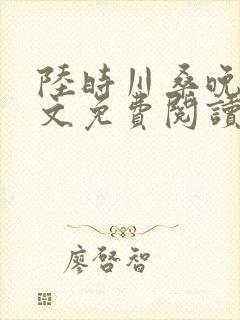 陸時川桑晚
文免費閱讀
廖啓智